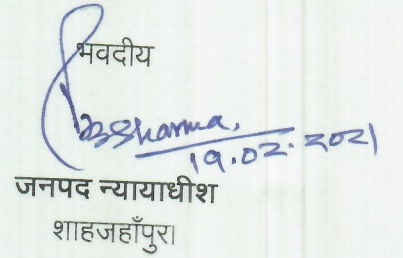 भवदीय
Sharma,
19.02.2021
जनपद न्यायाधीश
शाहजहाँपुर।